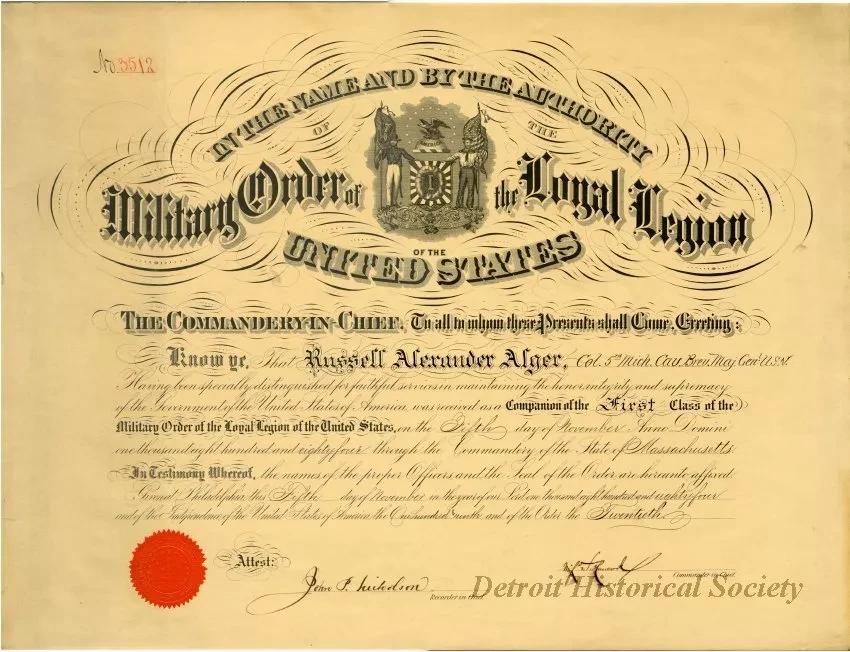 No. 3512
IN THE NAME AND BY THE AUTHORITY
OF THE
Military Order of the Loyal Legion
OF THE
UNITED STATES
THE COMMANDERY-IN-CHIEF, To all to whom these Presents shall Come, Greeting:
Know ye, That Russell Alexander Alger, Col. 5th Mich. Cav. Brev. Maj. Gen. U.S.V.
Having been specially distinguished for faithful services in maintaining the honor, integrity and supremacy
of the Government of the United States of America, was received as a Companion of the First Class of the
Military Order of the Loyal Legion of the United States, on the Fifth day of November Anno Domini
one thousand eight hundred and eighty four through the Commandery of the State of Massachusetts.
In Testimony Whereof, the names of the proper Officers and the Seal of the Order are hereunto affixed.
Given at Philadelphia, this Fifth day of November in the year of our Lord one thousand eight hundred and eighty four
and of the Independence of the United States of America, the One hundred ninth and of the Order the Twentieth.
Attest:
John P. Nicholson
Recorder in Chief.
Commander in Chief.
Detroit Historical Society